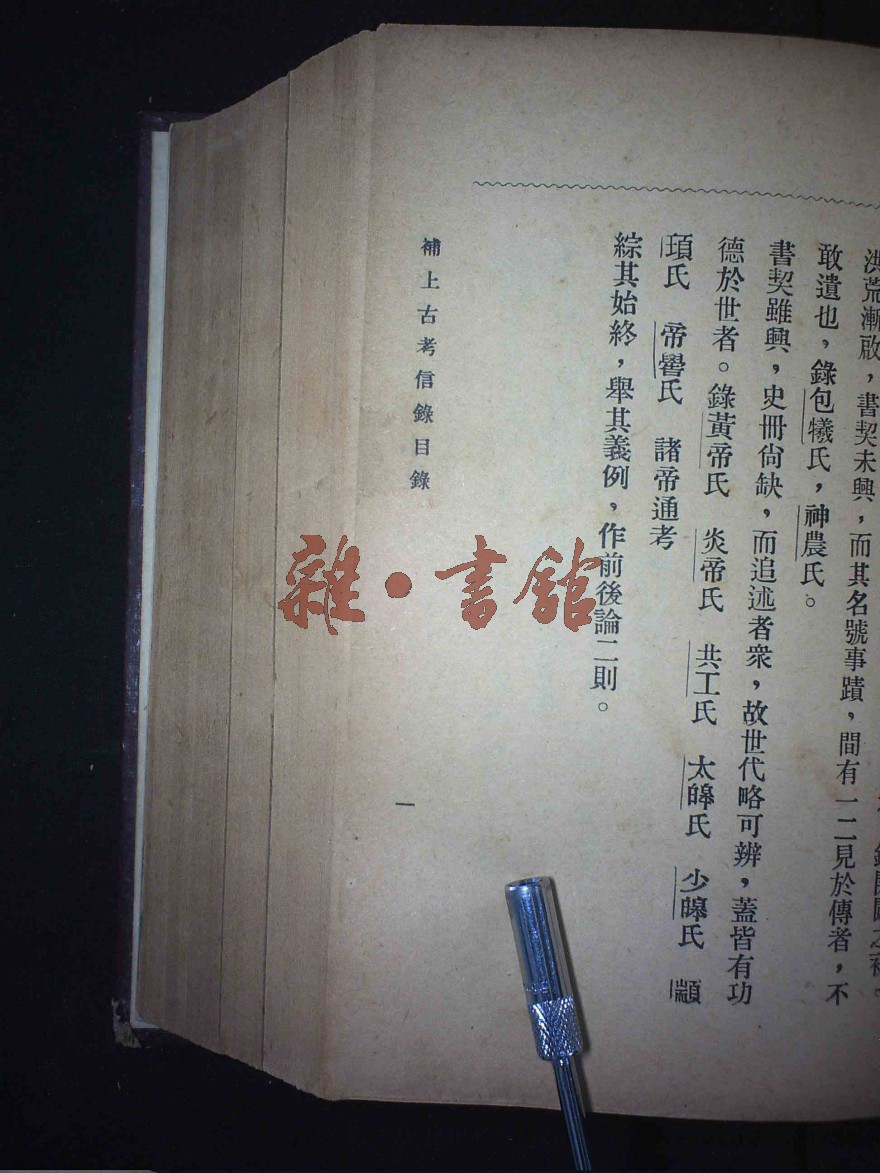 洪荒漸啟，書契未興，而其名號事蹟，間有一二見於傳者，不
敢遺也，錄包犧氏，神農氏。
書契雖興，史冊尙缺，而追述者衆，故世代略可辨，蓋皆有功
德於世者。錄黃帝氏　炎帝氏　共工氏　太皞氏　少皞氏　顓
頊氏　帝嚳氏　諸帝通考
綜其始終，舉其義例，作前後論二則。
補上古考信錄目錄
一
雜·書館